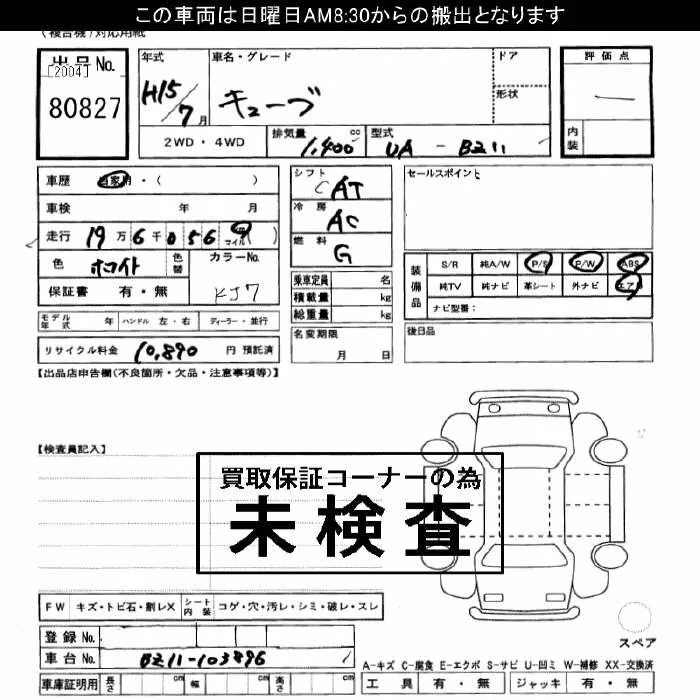 この車両は日曜日AM8:30からの搬出となります
(複合機)対応用紙
出品No. [2004] 80827
年式 H15/7月
車名・グレード キューブ
ドア
形状
評価点 ー
内装
2WD・4WD
排気量 1,400 cc
型式 UA - BZ11
車歴 自家用・( )
車検 年 月
走行 19万6千056 マイル( )
色 ホワイト 色替 カラーNo. KJ7
保証書 有・無
シフト CAT
冷房 AC
燃料 G
乗車定員 名
積載量 kg
総重量 kg
セールスポイント
装備品
S/R 純A/W P/S P/W ABS
純TV 純ナビ 革シート 外ナビ エアB
ナビ型番:
モデル年式 年 ハンドル 左・右 ディーラー・並行
名変期限 月 日
後日品
リサイクル料金 10,890 円 預託済
【出品店申告欄(不良箇所・欠品・注意事項等)】
【検査員記入】
買取保証コーナーの為
未検査
FW キズ・トビ石・割レX シート内装 コゲ・穴・汚レ・シミ・破レ・スレ
登録No.
車台No. BZ11-103896
スペア
A-キズ C-腐食 E-エクボ S-サビ U-凹ミ W-補修 XX-交換済
車庫証明用 長さ cm 幅 cm 高さ cm
工具 有・無 ジャッキ 有・無